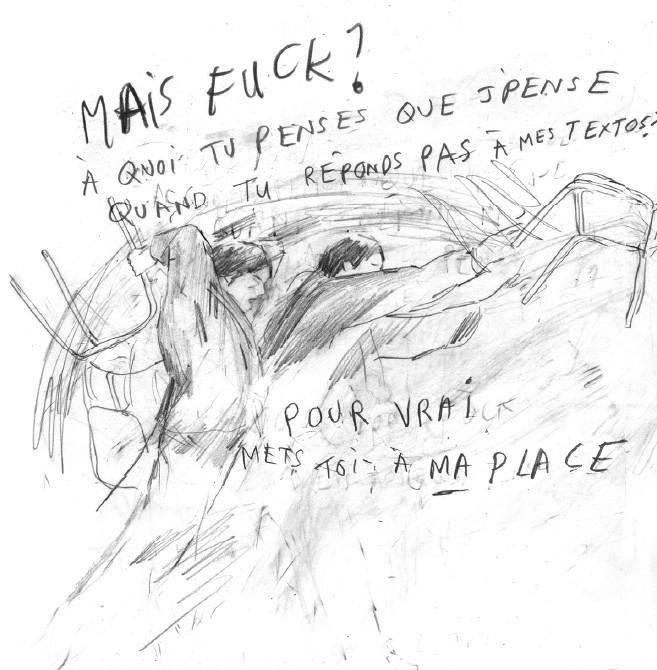 MAIS FUCK?
À QUOI TU PENSES QUE J'PENSE
QUAND TU RÉPONDS PAS À MES TEXTOS?
POUR VRAI
METS TOI À MA PLACE